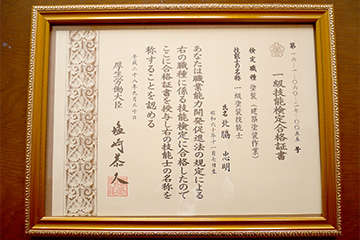 一級技能検定合格証書
検定職種 塗装(建築塗装作業)
技能士の名称 一級塗装技能士
氏名 北脇 忠明
昭和六十年十一月七日生
あなたは職業能力開発促進法の規定による
右の職種に係る技能検定に合格したので
ここに合格証書を授与し右の技能士の名称を
称することを認める
平成二十八年九月三十日
厚生労働大臣
塩崎恭久